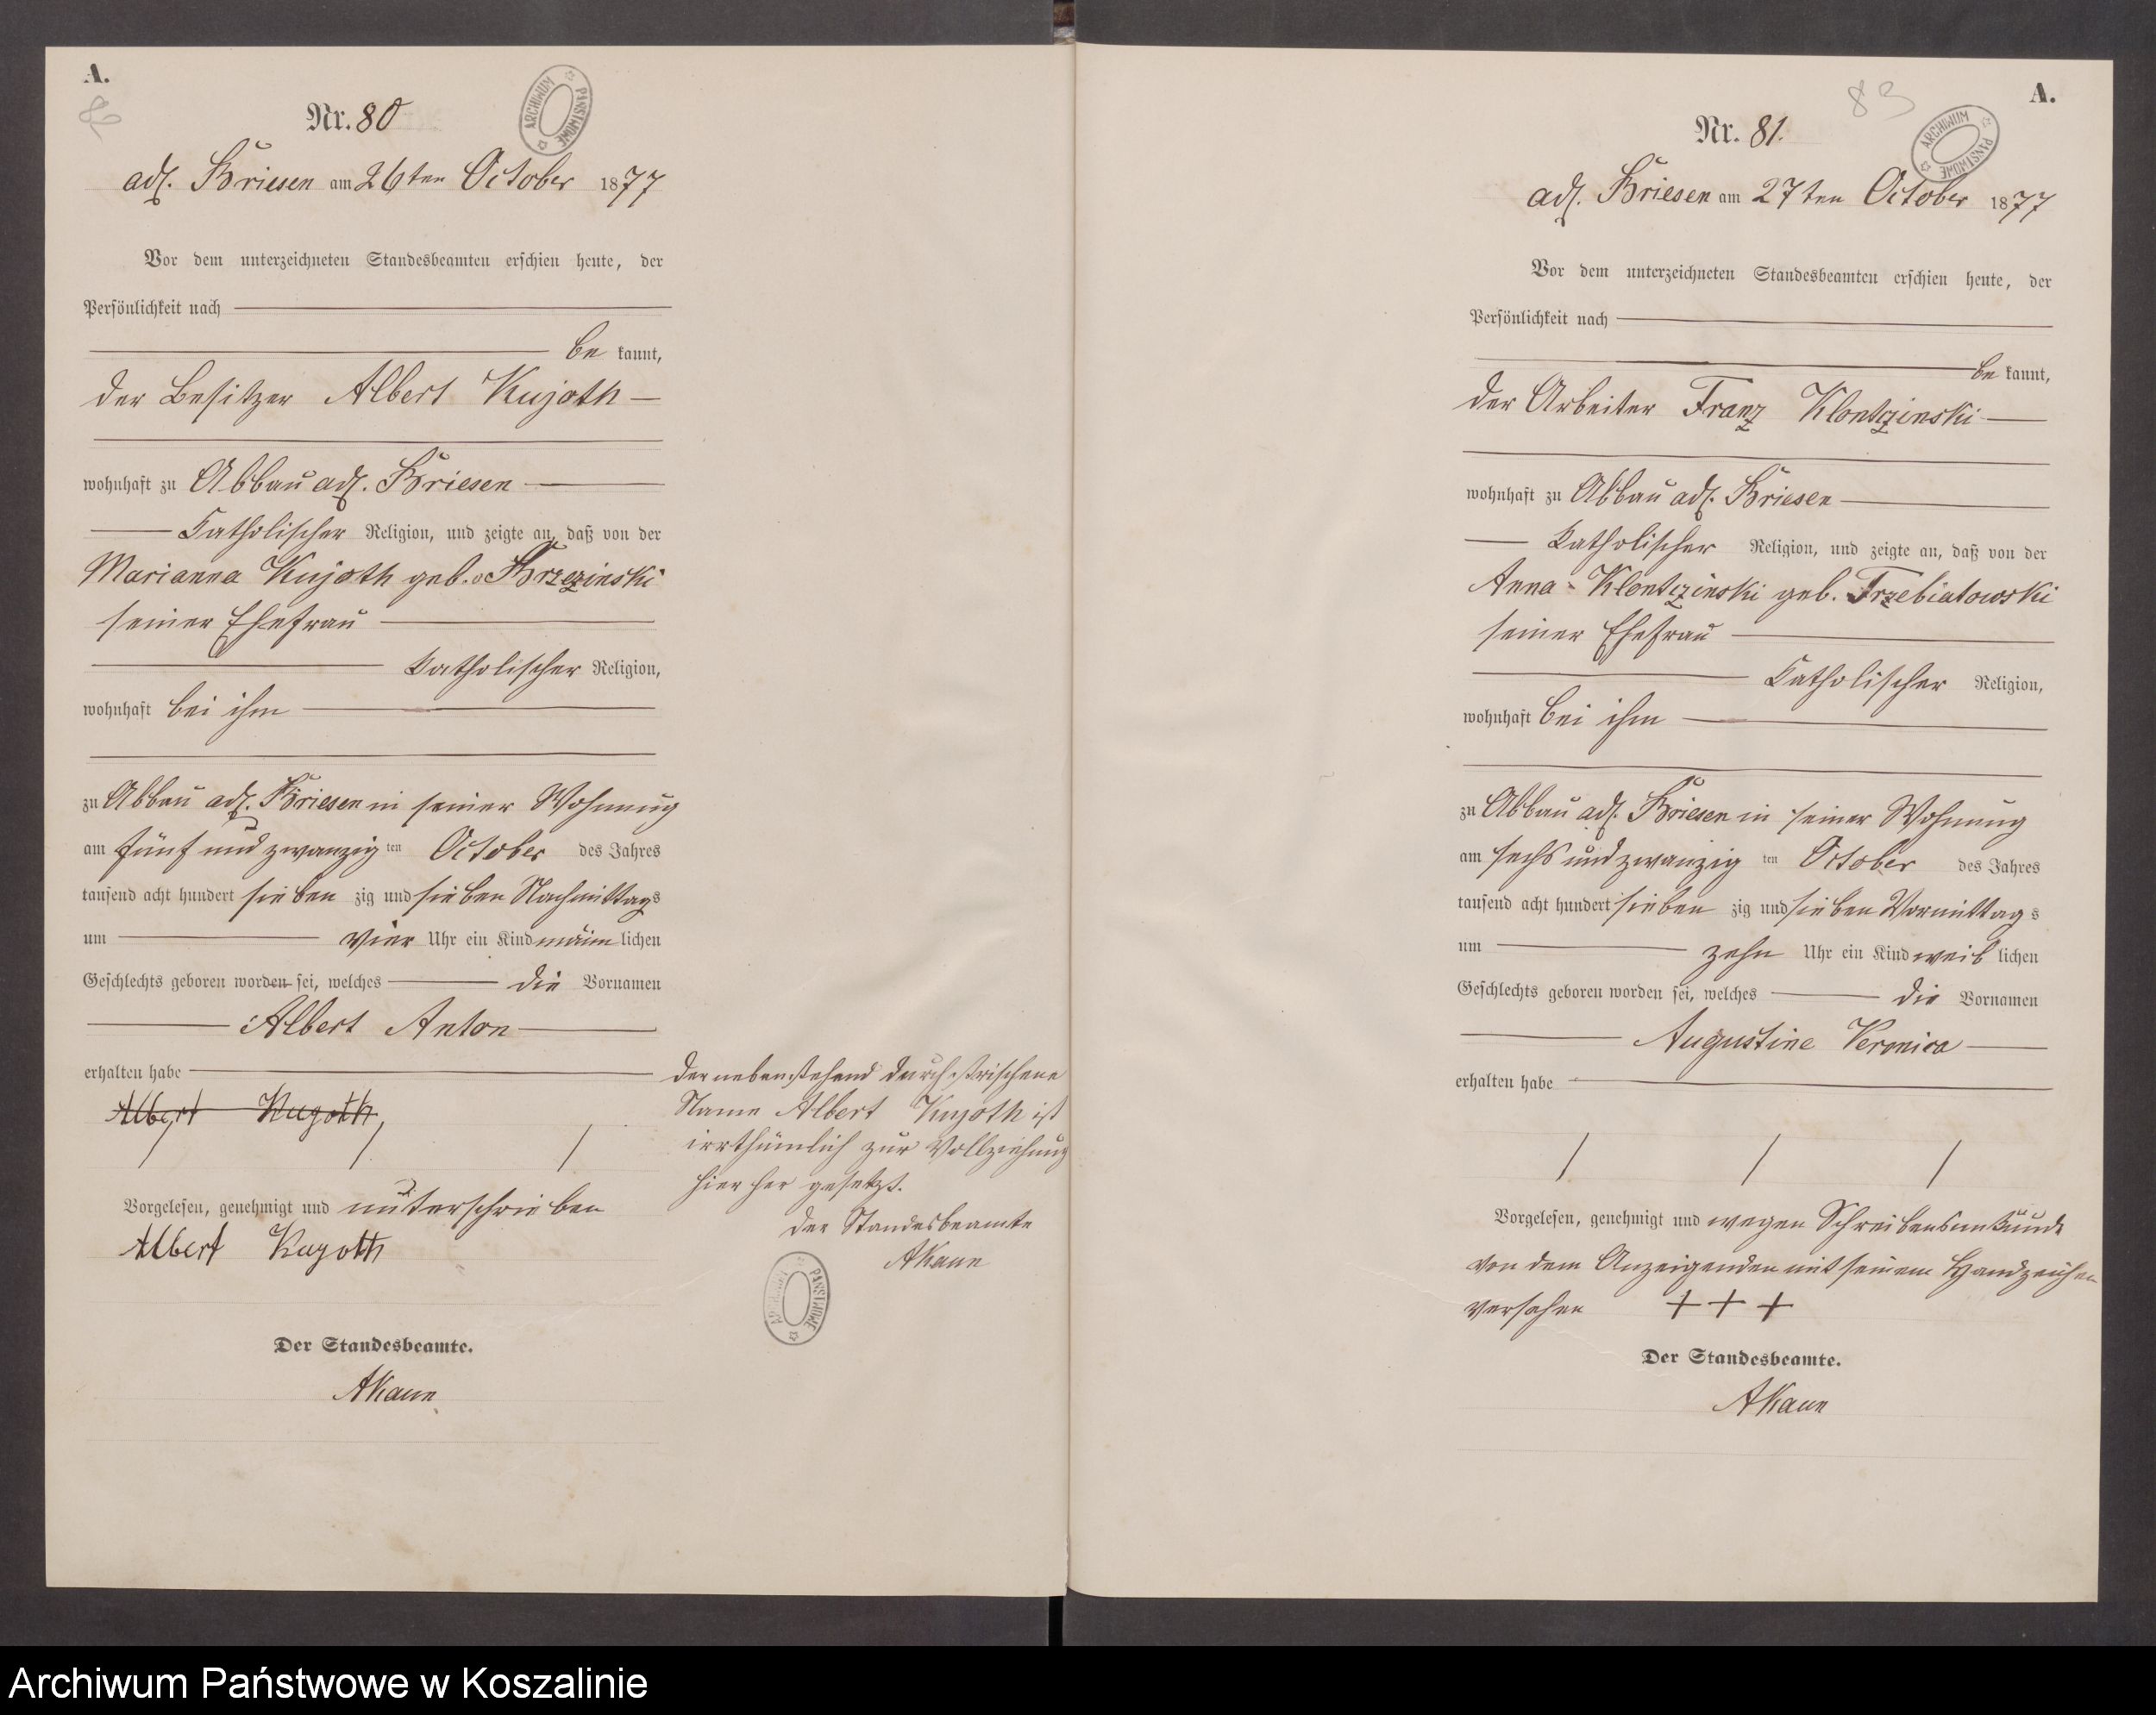 A.
Nr. 80
ARCHIWUM PAŃSTWOWE
adl. Briesen am 26ten October 1877
Vor dem unterzeichneten Standesbeamten erschien heute, der
Persönlichkeit nach
be kannt,
der Besitzer Albert Kujoth
wohnhaft zu Abbau adl. Briesen
Katholischer Religion, und zeigte an, daß von der
Marianna Kujoth geb. Brzezinski
seiner Ehefrau
Katholischer Religion,
wohnhaft bei ihm
zu Abbau adl. Briesen in seiner Wohnung
am fünf und zwanzig ten October des Jahres
tausend acht hundert sieben zig und sieben Nachmittags
um vier Uhr ein Kind männ lichen
Geschlechts geboren worden sei, welches die Vornamen
Albert Anton
erhalten habe
Albert Kugoth
Vorgelesen, genehmigt und unterschrieben
Albert Kugoth
Der Standesbeamte.
AKaun
der nebenstehend durchstrichene
Name Albert Kujoth ist
irrthümlich zur Vollziehung
hierher gesetzt.
Der Standesbeamte
AKaun
ARCHIWUM PAŃSTWOWE
83
A.
Nr. 81.
ARCHIWUM PAŃSTWOWE
adl. Briesen am 27ten October 1877
Vor dem unterzeichneten Standesbeamten erschien heute, der
Persönlichkeit nach
be kannt,
der Arbeiter Franz Klontczinski
wohnhaft zu Abbau adl. Briesen
Katholischer Religion, und zeigte an, daß von der
Anna Klontczinski geb. Trzebiatowski
seiner Ehefrau
Katholischer Religion,
wohnhaft bei ihm
zu Abbau adl. Briesen in seiner Wohnung
am sechs und zwanzig ten October des Jahres
tausend acht hundert sieben zig und sieben Vormittag s
um zehn Uhr ein Kind weib lichen
Geschlechts geboren worden sei, welches die Vornamen
Augustine Veronica
erhalten habe
Vorgelesen, genehmigt und wegen Schreibensunkunde
von dem Anzeigenden mit seinem Handzeichen
versehen + + +
Der Standesbeamte.
AKaun
Archiwum Państwowe w Koszalinie